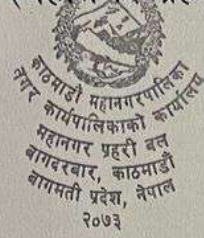 काठमाडौं महानगरपालिका
नगर कार्यपालिकाको कार्यालय
महानगर प्रहरी बल
बागदरबार, काठमाडौं
बागमती प्रदेश, नेपाल
२०७३